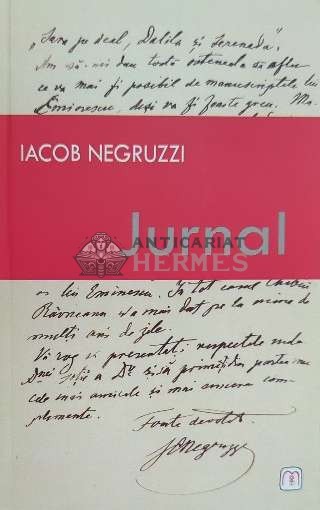 „Sara pe deal, Dalila și Serenada".
Am să-mi dau toată osteneala să aflu
ce va mai fi posibil de manuscriptele lui
Eminescu, deși va fi foarte greu. Ma-
IACOB NEGRUZZI
Jurnal
ANTICARIAT
HERMES
os lui Eminescu. În tot cazul
Râvneanu v'a mai dat pe la
mulți ani de zile.
Vă rog să presentați respectele mele
Dnei și să primiți din partea mea
cele mai amicale și mai sincere com-
plimente.
Foarte devotat
IC Negruzzi